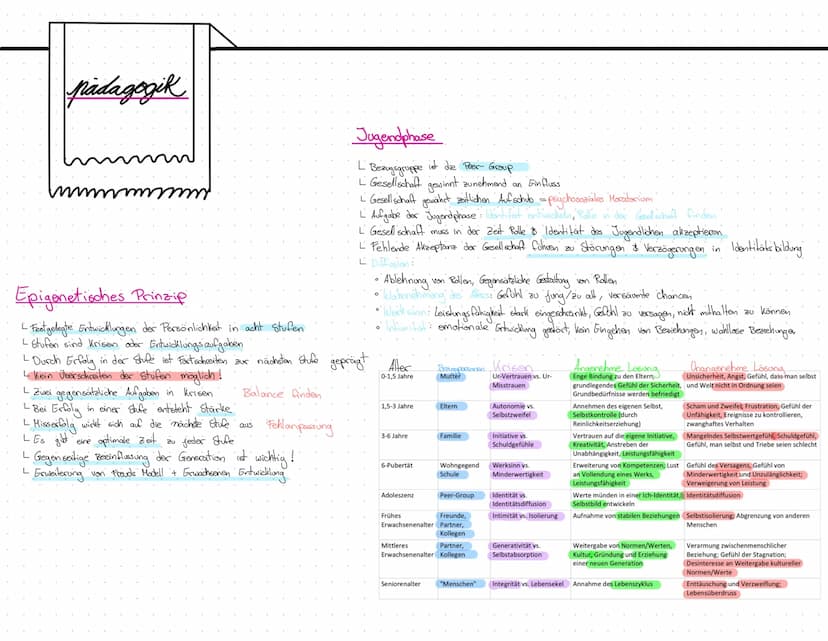 pädagogik
Epigenetisches Prinzip
Festgelegte Entwicklungen der Persönlichkeit in acht Stufen
Stufen sind Krisen oder Entwicklungsaufgaben
Durch Erfolg in der Stufe ist Fortschreiten zur nächsten Stufe geprägt
Kein Überschreiten der Stufen möglich!
Zwei gegensätzliche Aufgaben in Krisen Balance finden
Bei Erfolg in einer Stufe entsteht Stärke
Misserfolg wirkt sich auf die nächste Stufe aus Fehlanpassung
Es gibt eine optimale Zeit zu jeder Stufe
Gegenseitige Beeinflussung der Generation ist wichtig!
Erweiterung von Freuds Modell + Erwachsenen Entwicklung
Jugendphase
Bezugsgruppe ist die Peer-Group
Gesellschaft gewinnt zunehmend an Einfluss
Gesellschaft gewährt zeitlichen Aufschub = psychosoziales Moratorium
Aufgabe der Jugendphase: Identität entwickeln, Rolle in der Gesellschaft finden
Gesellschaft muss in der Zeit Rolle & Identität des Jugendlichen akzeptieren
Fehlende Akzeptanz der Gesellschaft führen zu Störungen & Verzögerungen in Identitätsbildung
Diffusion:
Ablehnung von Rollen, Gegensätzliche Gestaltung von Rollen
Wahrnehmung des Alters: Gefühl zu jung/zu alt, versäumte Chancen
Werksinn: Leistungsfähigkeit stark eingeschränkt, Gefühl zu versagen, nicht mithalten zu können
Intimität: emotionale Entwicklung gestört, kein Eingehen von Beziehungen, wahllose Beziehungen
Alter Bezugspersonen Krisen Angenehme Lösung Unangenehme Lösung
0-1,5 Jahre Mutter Ur-Vertrauen vs. Ur- Enge Bindung zu den Eltern; Unsicherheit, Angst; Gefühl, dass man selbst
Misstrauen grundlegendes Gefühl der Sicherheit, und Welt nicht in Ordnung seien
Grundbedürfnisse werden befriedigt
1,5-3 Jahre Eltern Autonomie vs. Annehmen des eigenen Selbst, Scham und Zweifel; Frustration; Gefühl der
Selbstzweifel Selbstkontrolle (durch Unfähigkeit, Ereignisse zu kontrollieren,
Reinlichkeitserziehung) zwanghaftes Verhalten
3-6 Jahre Familie Initiative vs. Vertrauen auf die eigene Initiative, Mangelndes Selbstwertgefühl, Schuldgefühle,
Schuldgefühle Kreativität; Anstreben der Gefühl, man selbst und Triebe seien schlecht
Unabhängigkeit, Leistungsfähigkeit
6-Pubertät Wohngegend Werksinn vs. Erweiterung von Kompetenzen; Lust Gefühl des Versagens, Gefühl von
Schule Minderwertigkeit an Vollendung eines Werks, Minderwertigkeit und Unzulänglichkeit;
Leistungsfähigkeit Verweigerung von Leistung
Adoleszenz Peer-Group Identität vs. Werte münden in einer Ich-Identität, Identitätsdiffusion
Identitätsdiffusion Selbstbild entwickeln
Frühes Freunde, Intimität vs. Isolierung Aufnahme von stabilen Beziehungen Selbstisolierung; Abgrenzung von anderen
Erwachsenenalter Partner, Menschen
Kollegen
Mittleres Partner, Generativität vs. Weitergabe von Normen/Werten, Verarmung zwischenmenschlicher
Erwachsenenalter Kollegen Selbstabsorption Kultur; Gründung und Erziehung Beziehung; Gefühl der Stagnation;
einer neuen Generation Desinteresse an Weitergabe kultureller
Normen/Werte
Seniorenalter "Menschen" Integrität vs. Lebensekel Annahme des Lebenszyklus Enttäuschung und Verzweiflung;
Lebensüberdruss